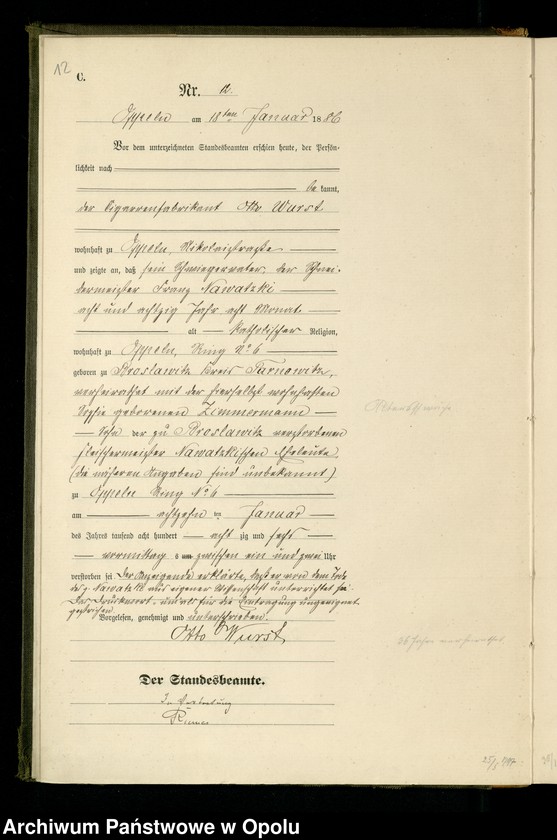 12
C.
Nr. 12.
Oppeln am 18ten Januar 1886
Vor dem unterzeichneten Standesbeamten erschien heute, der Persön-
lichkeit nach
be kannt,
der Cigarrenfabrikant Otto Wurst
wohnhaft zu Oppeln, Nikolaistraße
und zeigte an, daß sein Schwiegervater, der Schnei-
dermeister Franz Nawatzki
acht und achtzig Jahr acht Monat
alt katholischer Religion,
wohnhaft zu Oppeln, Ring No 6
geboren zu Broslawitz Kreis Tarnowitz,
verheirathet mit der hierselbst wohnhaften
Sophie geborenen Zimmermann
Sohn der zu Broslawitz verstorbenen
Fleischermeister Nawatzkischen Eheleute
(die näheren Angaben sind unbekannt)
zu Oppeln Ring No 6
am achtzehn ten Januar
des Jahres tausend acht hundert acht zig und sechs
vormittag s um zwischen ein und zwei Uhr
verstorben sei. Der Anzeigende erklärte, daß er von dem Tode
des p. Nawatzki aus eigener Wissenschaft unterrichtet sei.
Das Druckwort um als für die Eintragung ungeeignet
gestrichen.
Vorgelesen, genehmigt und unterschrieben.
Otto Wurst
Der Standesbeamte.
In Vertretung
25/
Archiwum Państwowe w Opolu